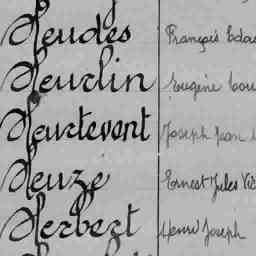 Heudes François Edou
Heurlin Eugène Lou
Heurtevent Joseph Jean
Heuze Ernest Jules Vic
Herbert Henri Joseph